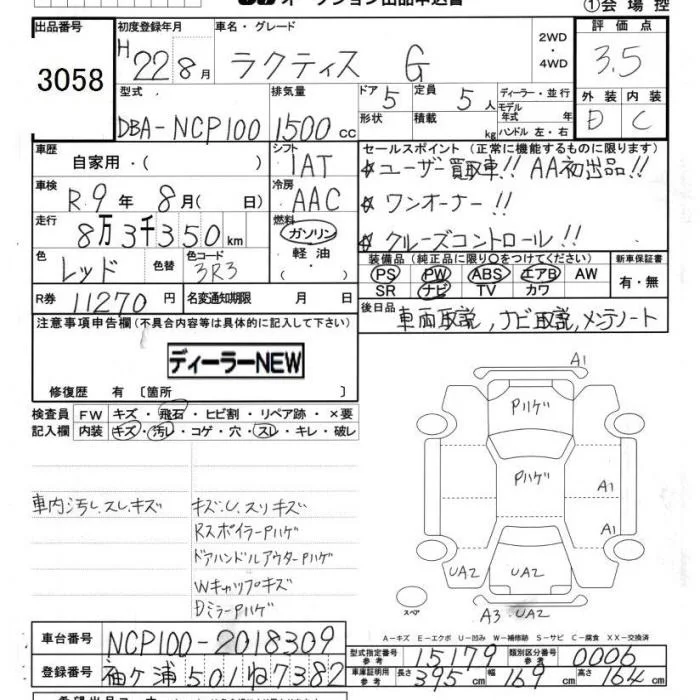 オークション出品申込書
①会場控
出品番号 初度登録年月 車名・グレード 評価点
3058 H22 8月 ラクティス G 2WD・4WD 3.5
型式 排気量 ドア 定員 ディーラー・並行 外装 内装
DBA-NCP100 1500cc 5 5人 モデル年式 年式 D C
形状 積載 kg ハンドル 左・右
車歴 シフト セールスポイント(正常に機能するものに限ります)
自家用・( ) IAT ☆ユーザー買取車!! AA初出品!!
車検 冷房
R.9年8月( 日) AAC ☆ワンオーナー!!
走行 燃料
8万3千350km ガソリン ☆クルーズコントロール!!
軽油・( )
色 色替 色コード 装備品(純正品に限り○をつけてください) 新車保証書
レッド 3R3 PS PW ABS エアB AW 有・無
SR ナビ TV カワ
R券 11270円 名変通知期限 月 日 後日品
車両取説,ナビ取説,メンテノート
注意事項申告欄(不具合内容等は具体的に記入して下さい)
ディーラーNEW
修復歴 有 〔箇所 〕
検査員 FW キズ・飛石・ヒビ割・リペア跡・×要
記入欄 内装 キズ・汚レ・コゲ・穴・スレ・キレ・破レ
車内汚し.スレ.キズ キズ.U.スリキズ
RスポイラーPハゲ
ドアハンドルアウターPハゲ
Wキャップキズ
DミラーPハゲ
A1
Pハゲ
Pハゲ
A1
A1
UA2 UA2
スペア
A3.UA2
A-キズ E-エクボ U-凹み W-補修跡 S-サビ C-腐食 XX-交換済
車台番号 NCP100-2018309
型式指定番号 参考 15179 類別区分番号 参考 0006
登録番号 袖ヶ浦 501 ね7382
車庫証明用 参考 長さ 395cm 幅 169cm 高さ 164cm